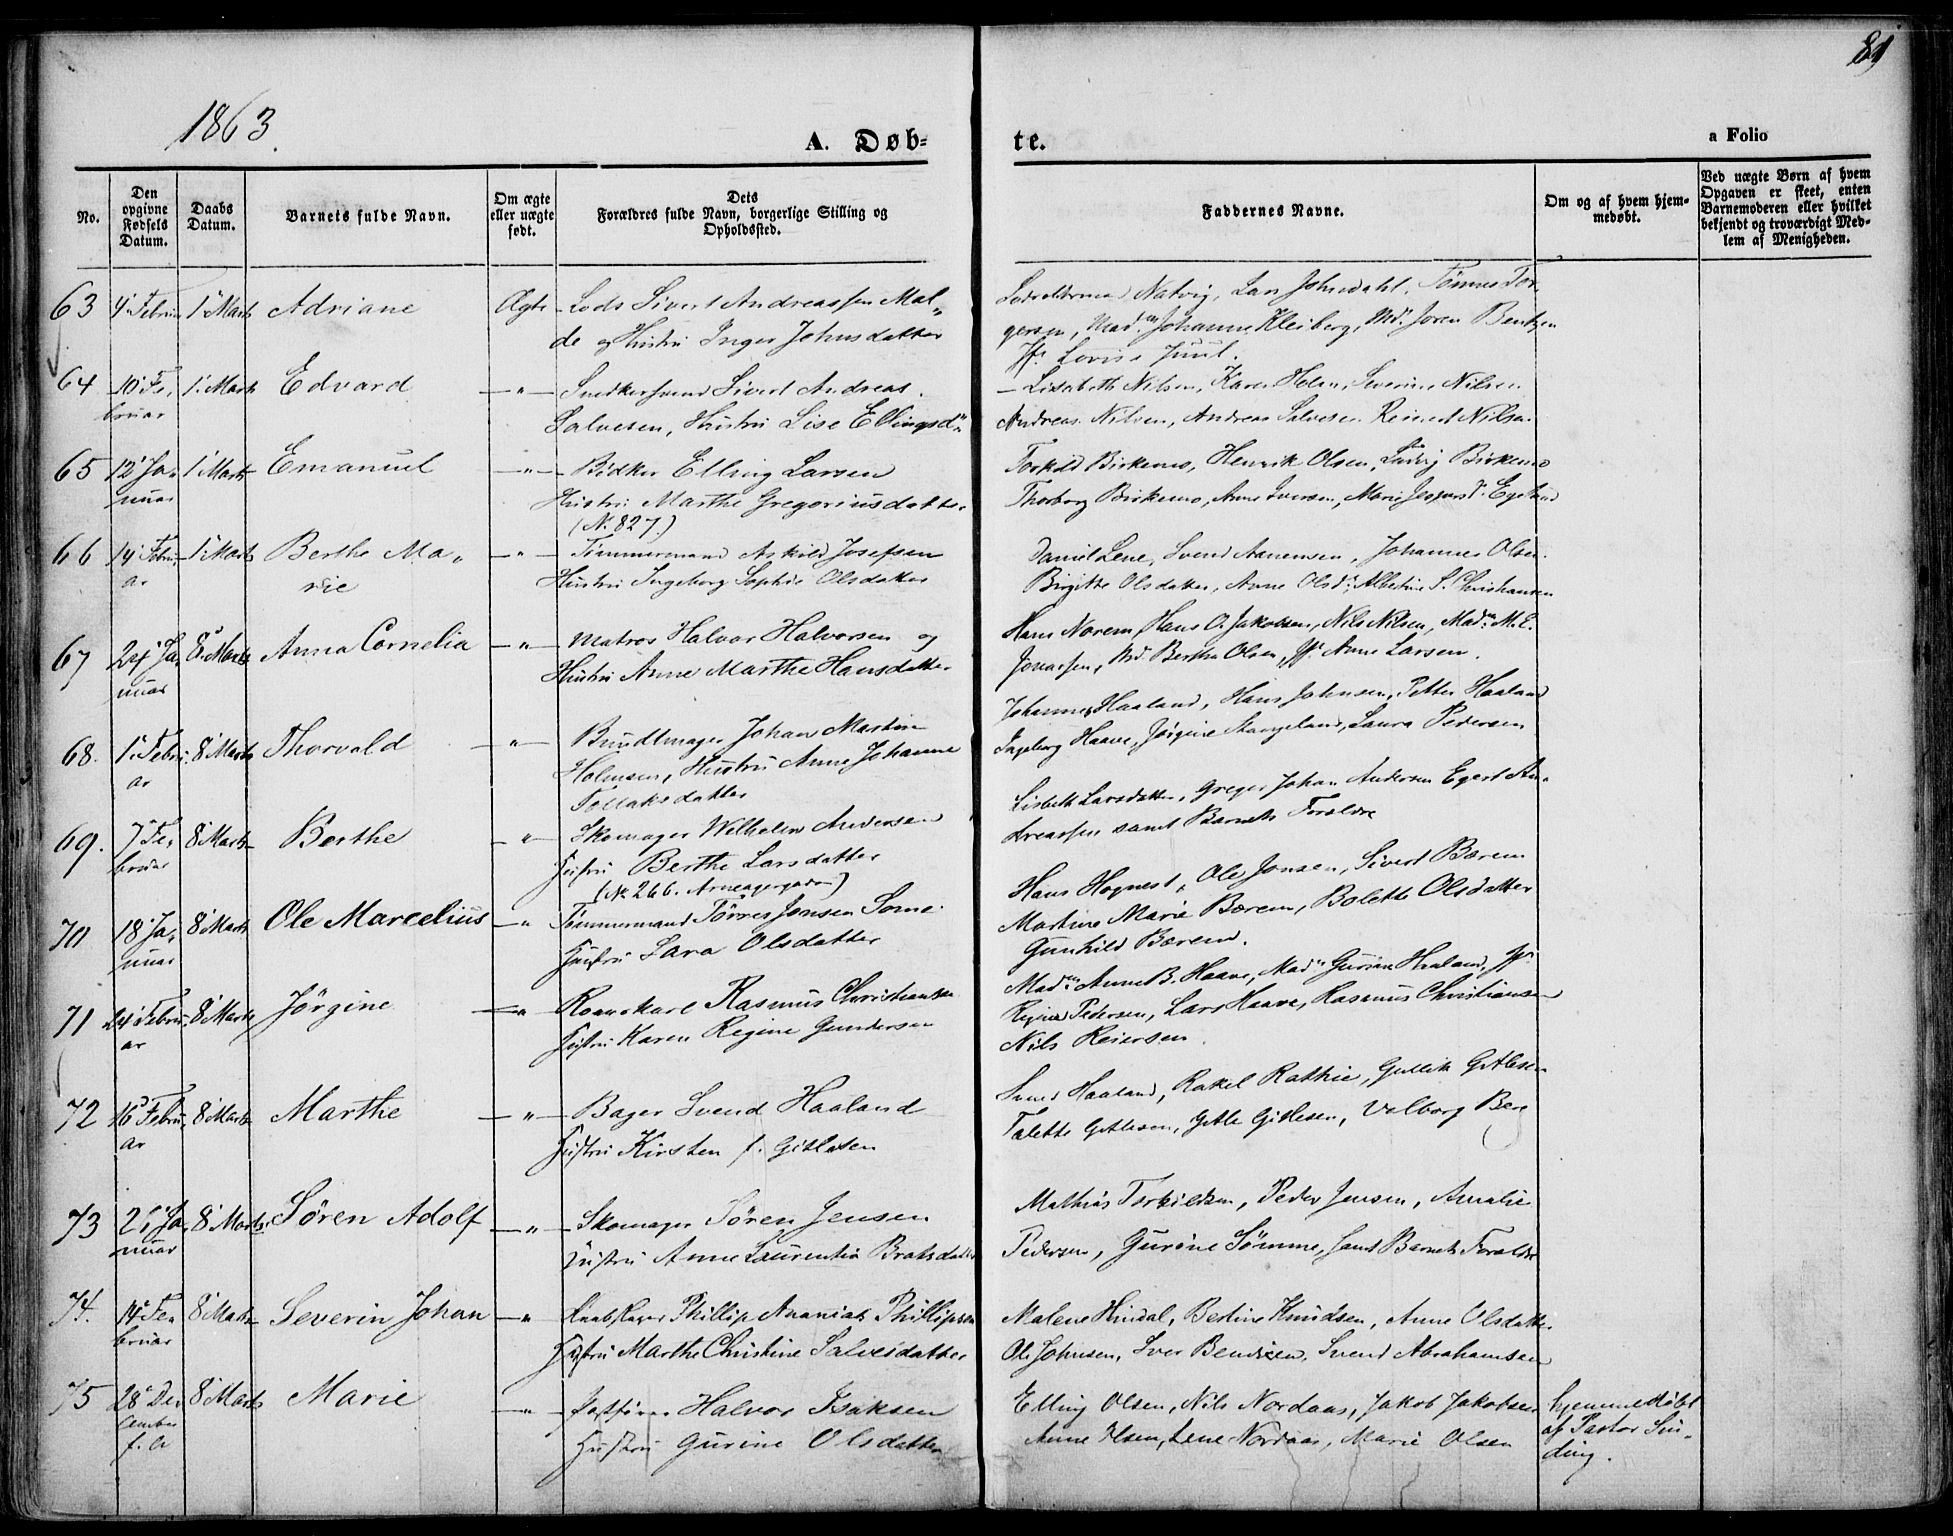 81
1863.
A. Døb-
te.
a Folio
No.
Den opgivne Fødsels Datum.
Daabs Datum.
Barnets fulde Navn.
Om ægte eller uægte født.
Dets Forældres fulde Navn, borgerlige Stilling og Opholdssted.
Faddernes Navne.
Om og af hvem hjemmedøbt.
Ved uægte Børn af hvem Opgaven er skeet, enten Barnemoderen eller hvilket bekjendt og troværdigt Medlem af Menigheden.
63 4' Febru 1' Marts Adriane Ægte Lods Sivert Andreassen Mal-
de og Hustru Inger Johnsdatter
Natvig, Lars Johnsdahl, Tønnes Tor-
gersen, Mad. Johanne Kleiberg, Md. Joren Bentzen
Jfr. Lovise Juul.
64 10' Fe- 1' Marts Edvard -"- Snedkersvend Sivert Andreas
bruar Salvesen, Hustru Lise Ellingsd.
Lisebeth Nilsen, Karen Helen, Severine Nilsen
Andreas Nilsen, Andreas Salvesen, Reinert Nilsen
65 12' Ja- 1' Marts Emanuel -"- Bødker Elling Larsen
nuar Hustru Marthe Gregoriusdatter
(No. 827.)
Torkild Birkemo, Henrik Olsen, Ludvig Birkemo
Thorborg Birkemo, Anne Iversen, Marie Jespersd. Egelund
66 14' Febru- 1' Marts Berthe Ma- -"- Tømmermand Askild Josefsen
ar rie Hustru Ingeborg Sophie Olsdatter
Daniel Lene, Svend Aanensen, Johannes Olsen
Birgitte Olsdatter, Anne Olsd. Albertine S. Christiansen
67 24' Ja- 8' Marts Anna Cornelia -"- Matros Halvor Halvorsen og
nuar Hustru Anne Marthe Hansdatter
Hans Norem, Hans O. Jakobsen, Nils Nilsen, Mad. M. E.
Jonassen, Md. Berthe Olsen, Jfr. Anne Larsen.
68. 1' Febru- 8' Marts Thorvald -"- Bundtmager Johan Martin
ar Holmsen, Hustru Anne Johanne
Tollaksdatter
Johannes Haaland, Hans Johnsen, Petter Haaland
Ingeborg Haave, Jørgine Stangeland, Laura Pedersen
69. 7' Fe- 8' Marts Berthe -"- Skomager Wilhelm Andersen
bruar Hustru Berthe Larsdatter
(No. 266. Arneagergaden)
Lisbeth Larsdatter, Greger Johan Andersen Egert An-
dreassen samt Barnets Forældre
70 18' Ja- 8' Marts Ole Marcelius -"- Tømmermand Tørres Jonsen Some
nuar Hustru Sara Olsdatter
Hans Hognest, Ole Jonsen, Sivert Bærem
Martine Marie Bærem, Bolette Olsdatter
Gunhild Bærem.
71 24' Febru- 8' Marts Jørgine -"- Roerskarl Rasmus Christiansen
ar Hustru Karen Regine Gundersen
Mad. Anne B. Haave, Mad. Gurine Haaland, Jfr.
Regine Pedersen, Lars Haave, Rasmus Christiansen
Nils Reiersen
72 16' Febru- 8' Marts Marthe -"- Bager Svend Haaland
ar Hustru Kirsten f. Gitlesen
Svend Haaland, Rakel Rathie, Gullik Gitlesen
Talette Gitlesen, Gitle Gitlesen, Valborg Berg
73 26' Ja- 8' Marts Søren Adolf -"- Skomager Søren Jensen
nuar Hustru Anne Laurentia Bratsdatter
Mathias Torkildsen, Peder Jensen, Amalie
Pedersen, Gurine Sømme, samt Barnets Forældre
74. 14' Fe- 8' Marts Severin Johan -"- Phillip Ananias Phillipsen
bruar Hustru Marthe Christine Salvesdatter
Malene Hindal, Bertine Knudsen, Anne Olsdatter
Ole Johnsen, Iver Bendixen, Svend Abrahamsen
75 28' De- 8' Marts Marie -"- Halvor Isaksen
cember Hustru Gurine Olsdatter
f. A.
Elling Olsen, Nils Nordaas, Jakob Jakobsen
Anne Olsen, Lene Nordaas, Marie Olsen
hjemmedøbt
af Pastor Sin-
ding.